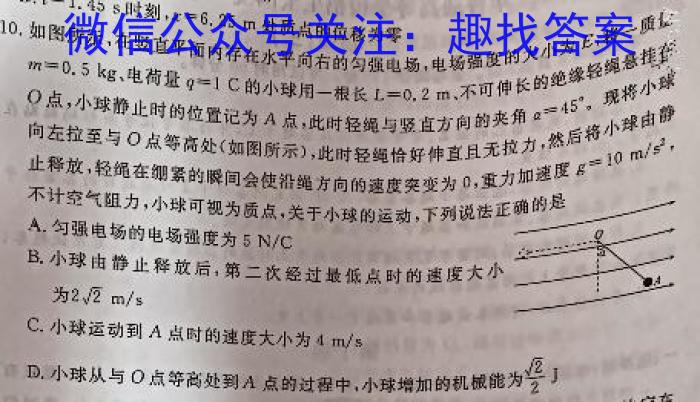 1.45 s时刻,
微信公众号关注:趣找答案
10. 如图所示,在竖直平面内存在水平向右的匀强电场,电场强度的大小为E,一质量
m=0.5 kg、电荷量 q=1 C 的小球用一根长 L=0.2 m、不可伸长的绝缘轻绳悬挂在
O点,小球静止时的位置记为 A 点,此时轻绳与竖直方向的夹角 α=45°。现将小球
向左拉至与 O 点等高处(如图所示),此时轻绳恰好伸直且无拉力,然后将小球由静
止释放,轻绳在绷紧的瞬间会使沿绳方向的速度突变为 0,重力加速度 g=10 m/s²,
不计空气阻力,小球可视为质点,关于小球的运动,下列说法正确的是
A. 匀强电场的电场强度为 5 N/C
B. 小球由静止释放后,第二次经过最低点时的速度大小
为2√2 m/s
C. 小球运动到 A 点时的速度大小为 4 m/s
D. 小球从与 O 点等高处到 A 点的过程中,小球增加的机械能为 √2/2 J
O
α
A